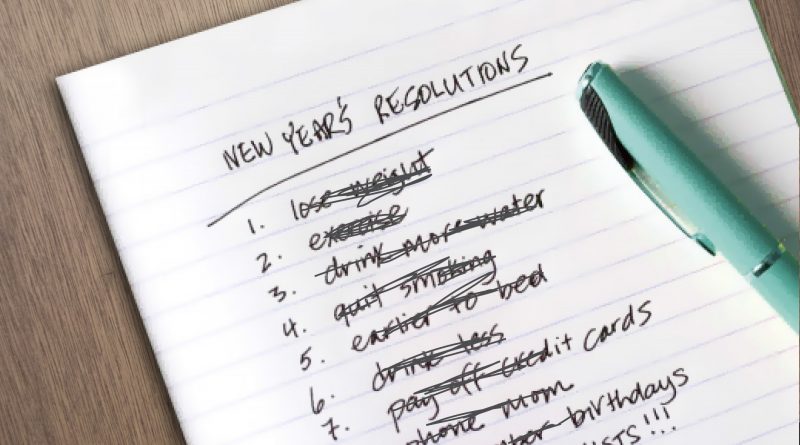 NEW YEAR'S RESOLUTIONS
1. lose weight
2. exercise
3. drink more water
4. quit smoking
5. earlier to bed
6. drink less
7. pay off credit cards
phone mom
birthdays
!!!